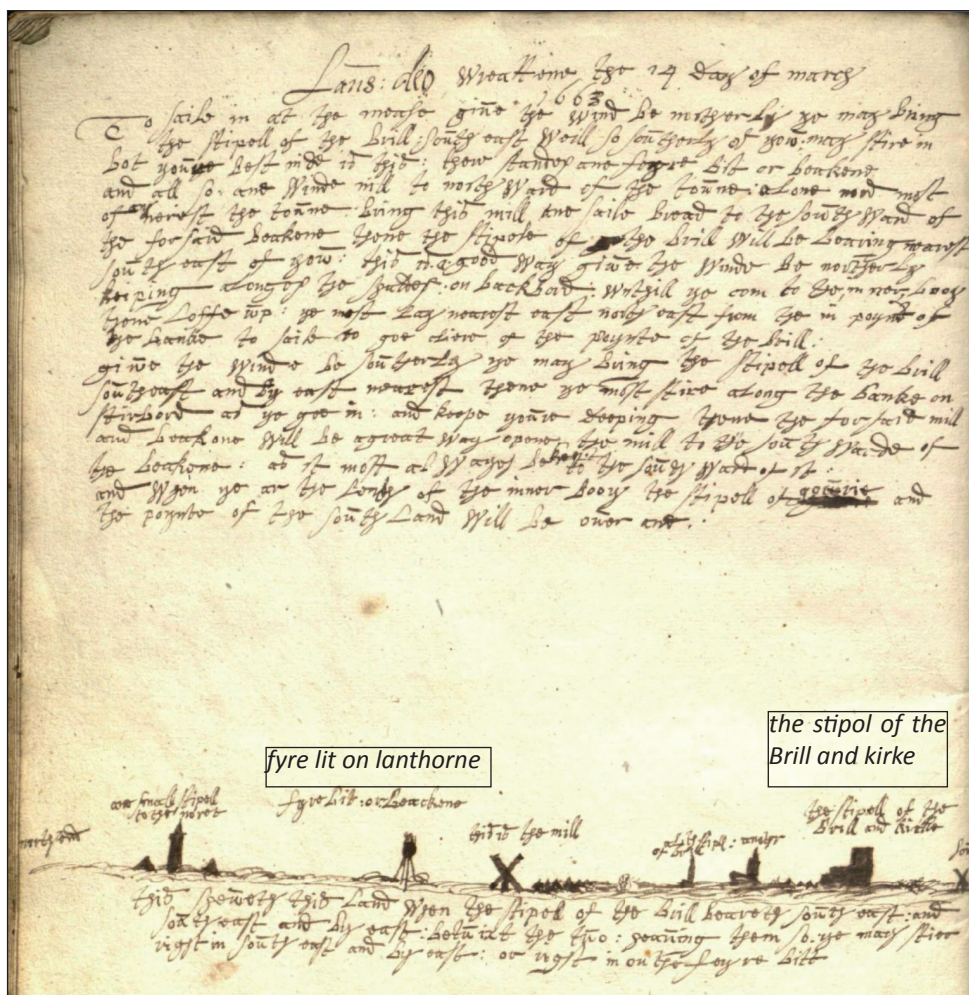 Laus: deo Wreattene the 14 Day of march
1663
To saile in at the mease give the Wind be northerly ye may bring
the stipell of the Brill: south east Weill so southerly of yow may stire in
bot youre best inde is this: there standes ane fyre bit or beakene
and all so: ane Winde mill to north Ward of the towne: alone most
of nerest the towne: bring this mill ane saile bread to the south Ward of
the forsaid beakene thene the stipele of the Brill Will be bearing nearest
south east of yow: this is a good Way give the Winde be northerly
keiping alonges the on backbord: Whill ye com to the inner booy
thene Loffe up: ye most Lay nearest east north east from the in poynt of
the banke to saile to goe cliere of the poynte of the Brill:
give the Winde be southerly ye may bring the stipell of the Brill
southeast and by east nearest thene ye most stire along the banke on
stirbord as ye goe in: and keepe youre deeping thene the forsaid mill
and beakone Will be a great Way opene the mill to the south Warde of
the beakene: as it most al Wayes be kept to the south Ward of it:
and When ye ar the Lenth of the inner booy the stipell of gourie and
the poynte of the south Land Will be over ane:
fyre lit on lanthorne
the stipol of the
Brill and kirke
ane smale stipell
to the noret
fyre bit: or beackene
the stipell of the
Brill and kirke
north end
this is the mill
stipll: another
of brill
this sheweth this Land When the stipell of the Brill beareth south east: and
south east and by east: betwixt the two: heaving them so: ye may stier
right in south east and by east: or right in on the feyre bitt